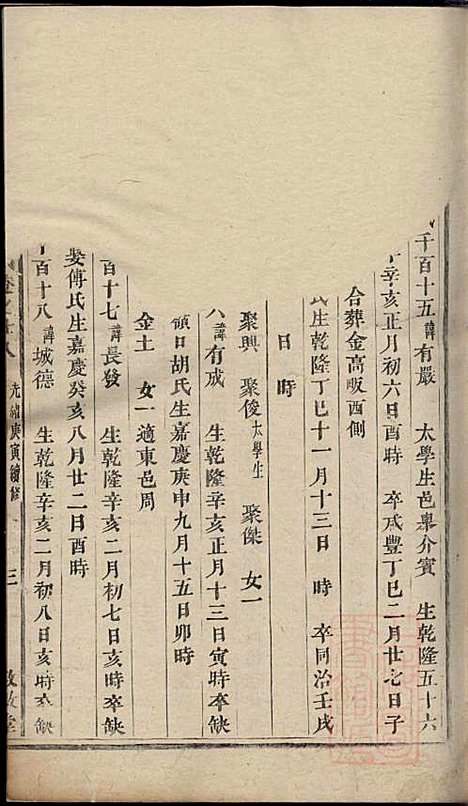 千百十五 諱有嚴 太學生邑舉介賓 生乾隆五十六
辛亥正月初六日酉時 卒咸豐丁巳二月廿七日子
合葬金高畈西側
氏生乾隆丁巳十一月十三日 時 卒同治壬戌
日 時
聚興 聚俊太學生 聚傑 女一
六 諱有成 生乾隆辛亥正月十三日寅時卒缺
領口胡氏生嘉慶庚申九月十五日卯時
金土 女一適東邑周
百十七 諱長發 生乾隆辛亥二月初七日亥時卒缺
娶傅氏生嘉慶癸亥八月廿二日酉時
百十八 諱城德 生乾隆辛亥二月初八日亥時卒缺
卷之十八 光緒庚寅續修 三 敦